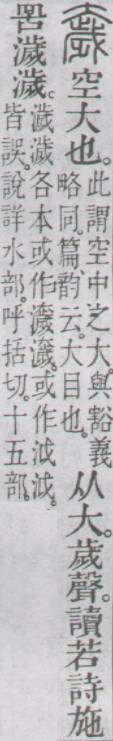 奯空大也。此謂空中之大。與豁義略同。篇、韵云。大目也。从大。歲聲。讀若詩施
罟濊濊。濊濊各本或作瀎瀎。或作泧泧。皆誤。說詳水部。呼括切。十五部。